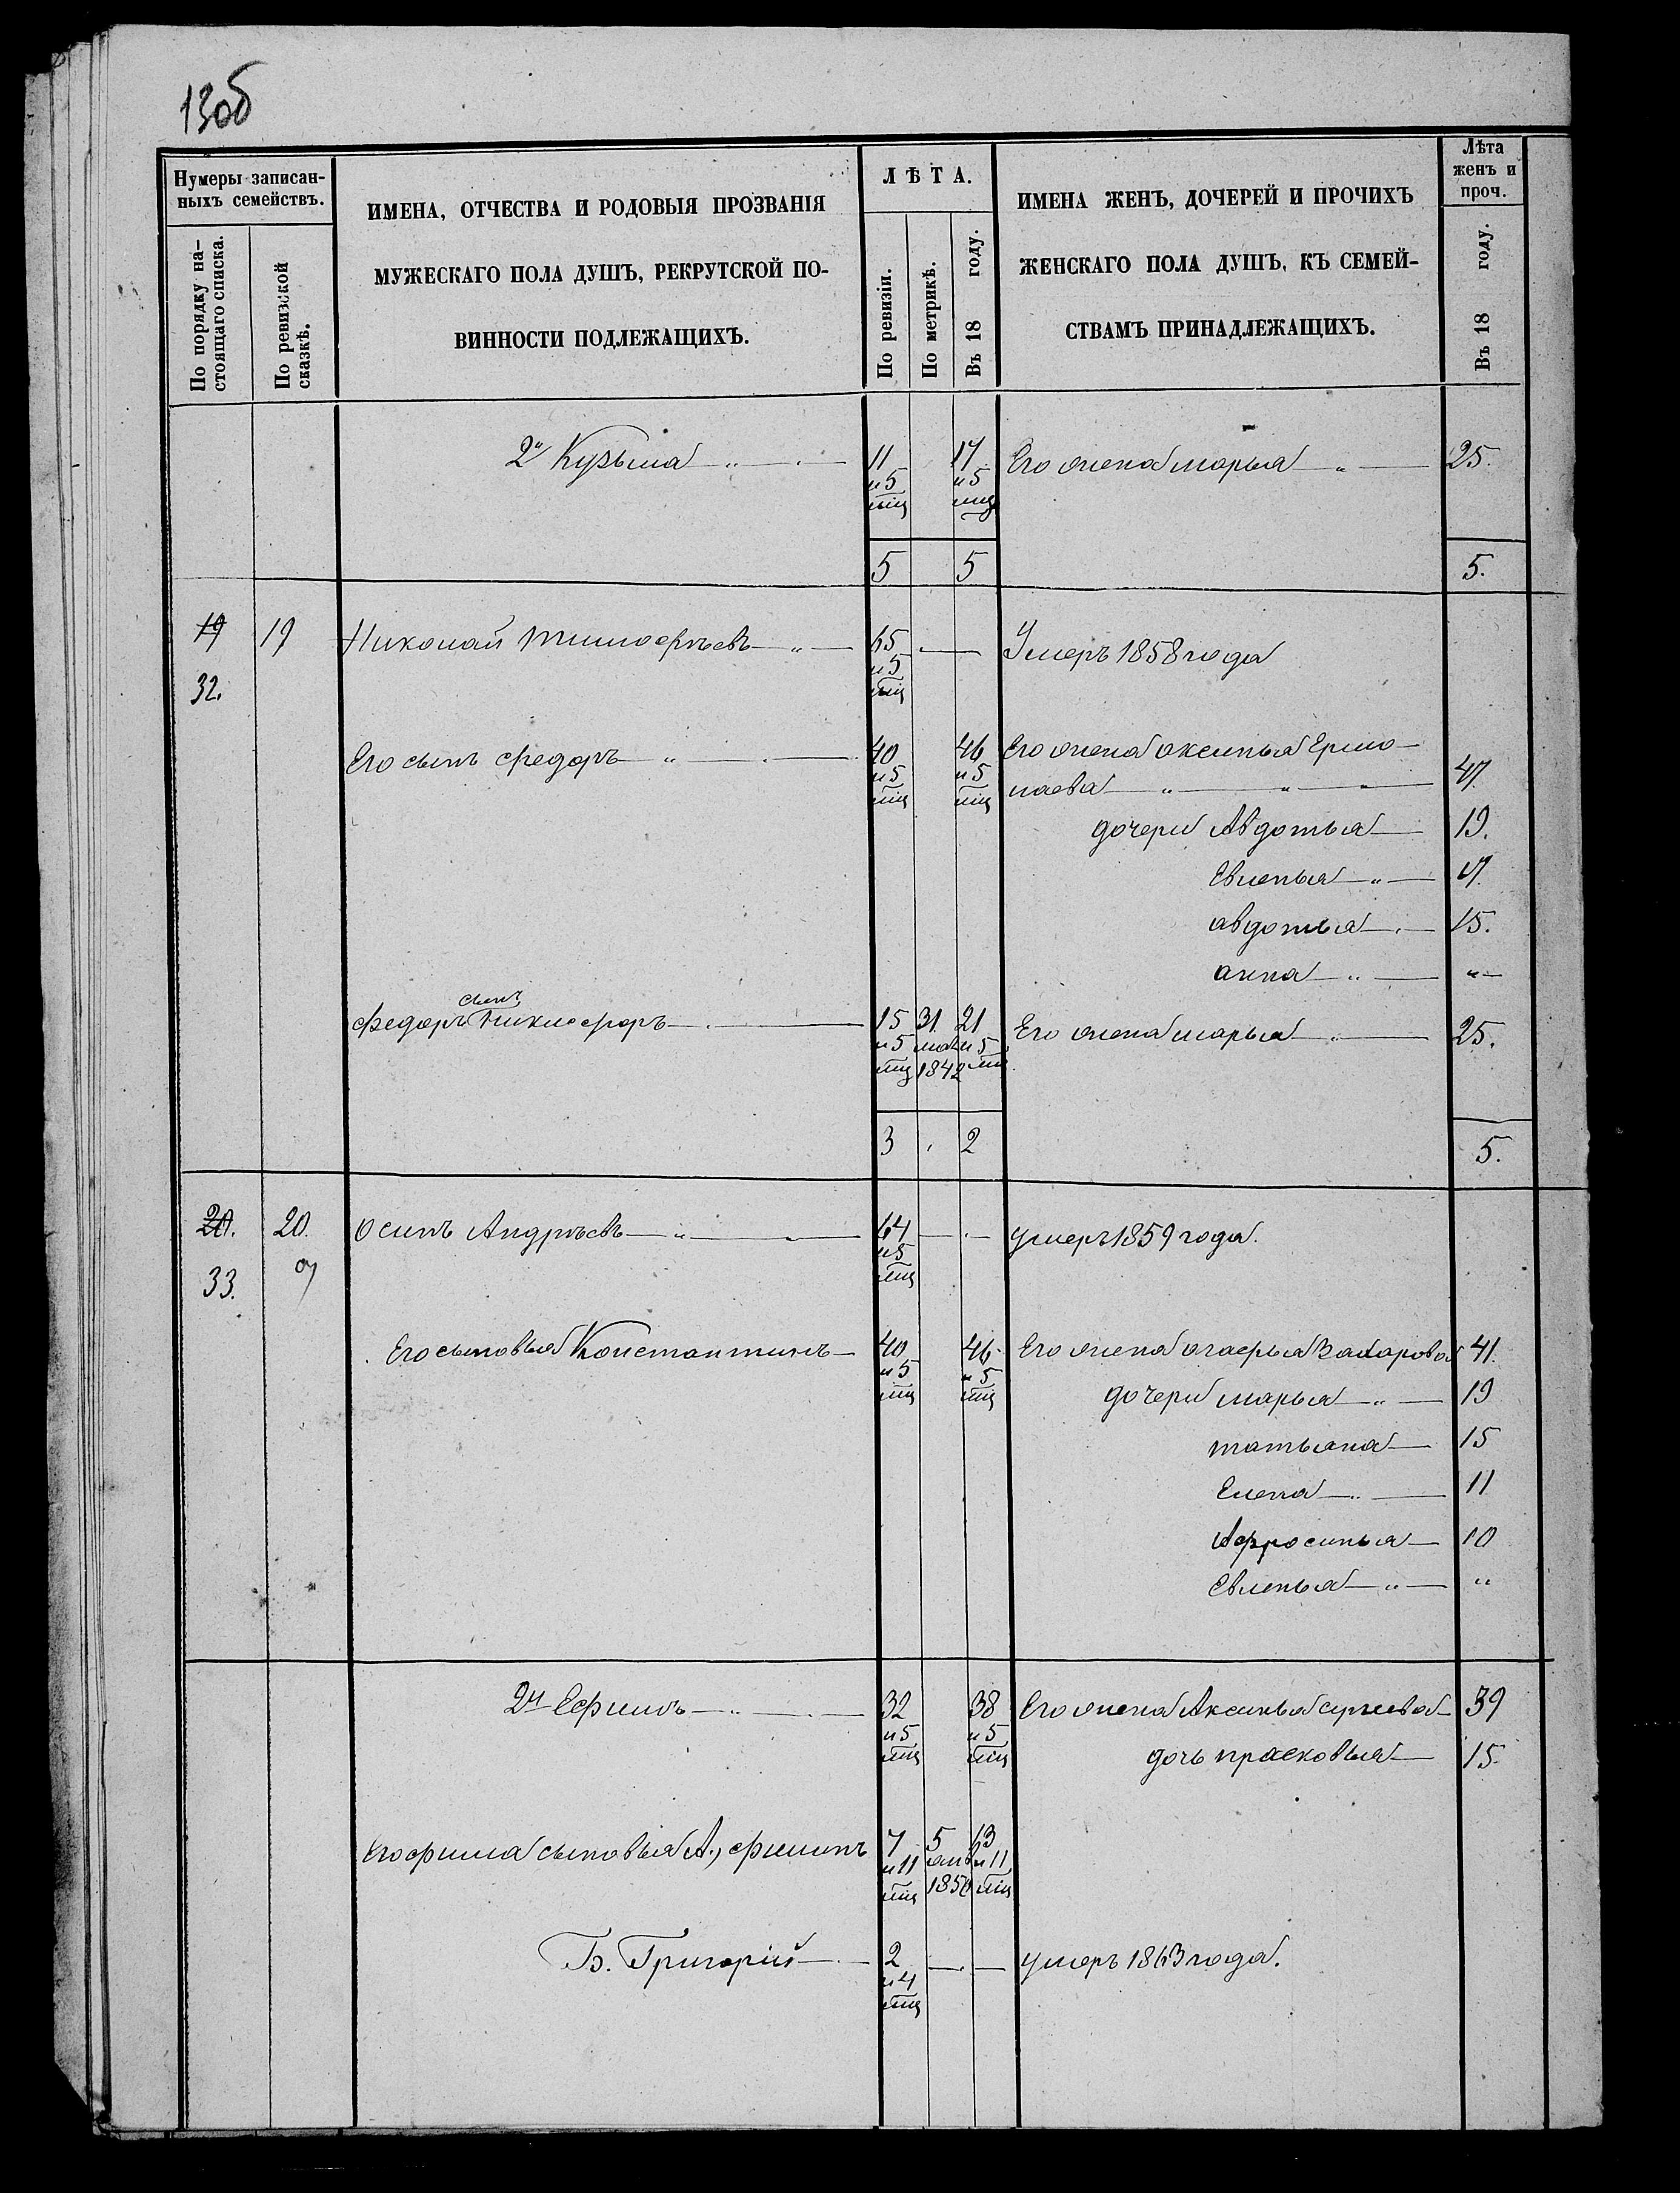 130б
Нумеры записан-
ныхъ семействъ.
По порядку на-
стоящаго списка.
По ревизской
сказкѣ.
ИМЕНА, ОТЧЕСТВА И РОДОВЫЯ ПРОЗВАНІЯ
МУЖЕСКАГО ПОЛА ДУШЪ, РЕКРУТСКОЙ ПО-
ВИННОСТИ ПОДЛЕЖАЩИХЪ.
ЛѢТА.
По ревизіи.
По метрикѣ.
Въ 18 году.
ИМЕНА ЖЕНЪ, ДОЧЕРЕЙ И ПРОЧИХЪ
ЖЕНСКАГО ПОЛА ДУШЪ, КЪ СЕМЕЙ-
СТВАМЪ ПРИНАДЛЕЖАЩИХЪ.
Лѣта
женъ и
проч.
Въ 18 году.
2й Кузьма 11 17 Его жена марья 25.
и 5 и 5
мцъ мцъ
5 5 5.
19 19 Николай тимофѣевъ 65 Умеръ 1858 года
32. и 5
мцъ
Его сынъ федоръ 40 46 Его жена оксинья Ермо-
и 5 и 5 лаева 47.
мцъ мцъ
дочери Авдотья 19.
Евленья 17.
авдотья 15.
анна "
сынъ
федоръ Никифоръ 15 31. 21 Его жена марья 25.
и 5 мая и 5
мцъ 1842 мцъ
3 2 5.
20. 20. Осипъ Андрѣевъ 64 умеръ 1859 года.
33. и 5
мцъ
Его сыновья Константинъ 40 46 Его жена агафья Захарова 41.
и 5 и 5
мцъ мцъ дочери марья 19
татьяна 15
Елена 11
Афросинья 10
Евленья "
2й Ефимъ 32 38 Его жена Аксинья 39
и 5 и 5
мцъ мцъ дочь прасковья 15.
Егофима сыновья А, филипъ 7 5 13
и 11 и 11
мцъ 1850 мцъ
Б. Григорій 2 умеръ 1863 года.
и 4
мцъ